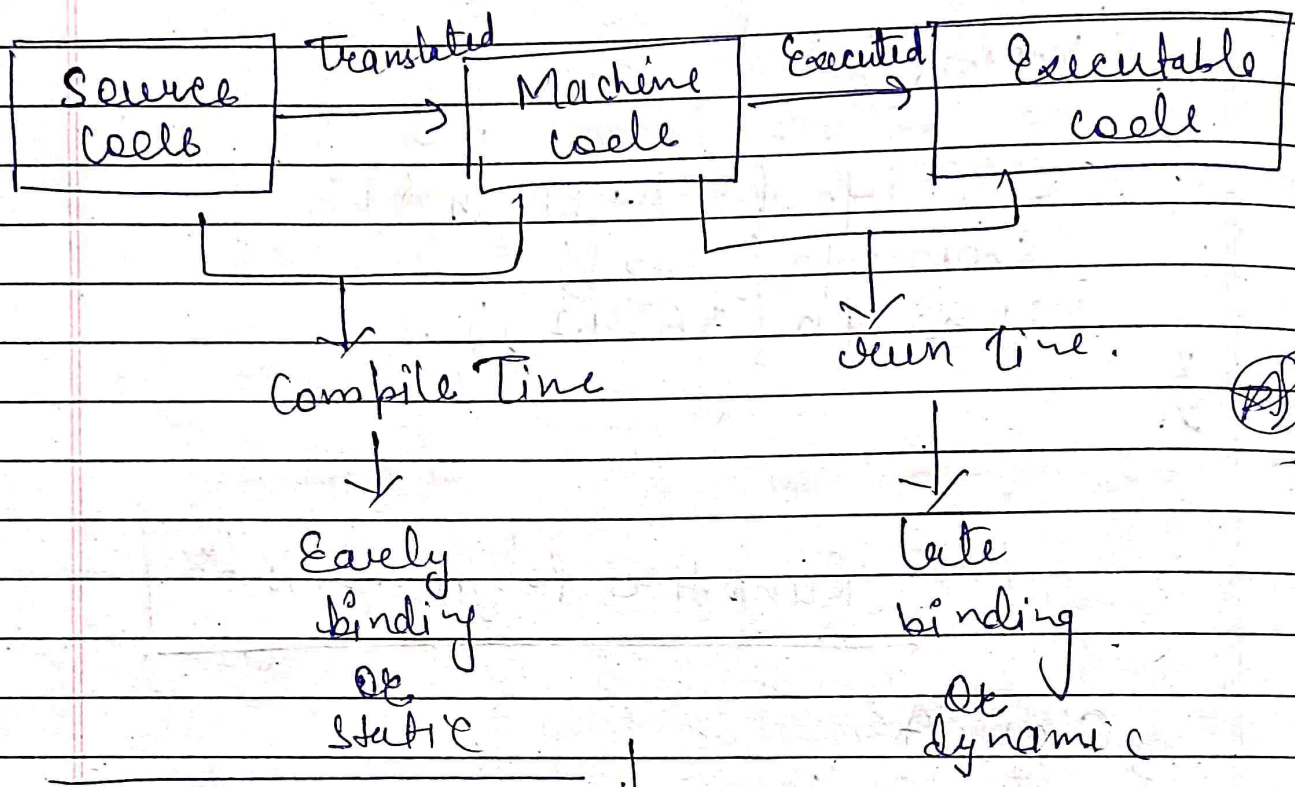 Source
Code
Translated
Machine
code
Executed
Executable
code
Compile Time
run time.
Early
binding
Or
static
late
binding
Or
dynamic